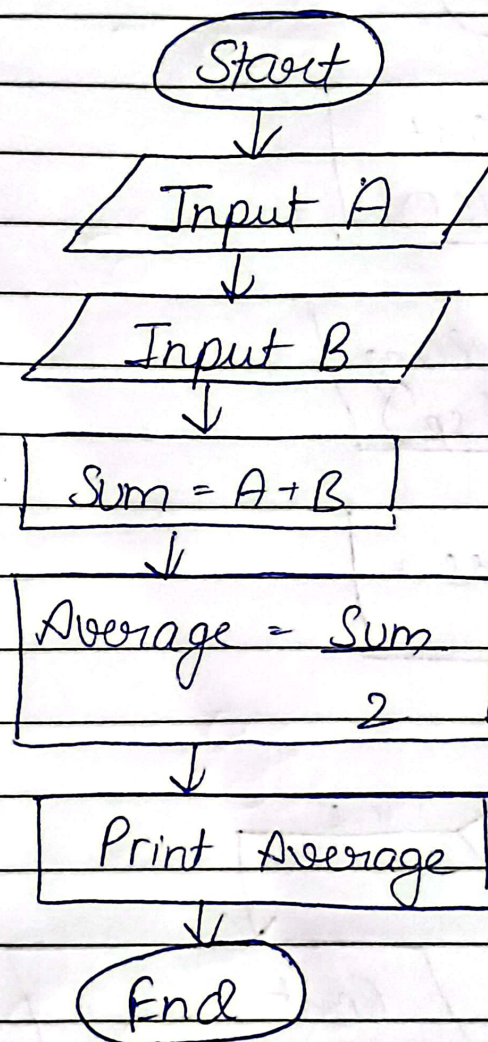 Start
Input A
Input B
Sum = A + B
Average = Sum
2
Print Average
End